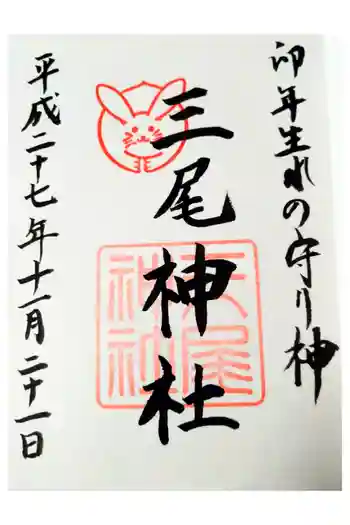 卯年生れの守り神
三尾神社
平成二十七年十一月二十一日
三尾神社